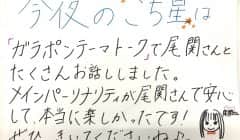 今夜のごち星は
「ガラポンテーマトーク」で尾関さんと
たくさんお話ししました。
メインパーソナリティが尾関さんで安心
して、本当に楽しかったです!
ぜひ、きいてくださいね♪